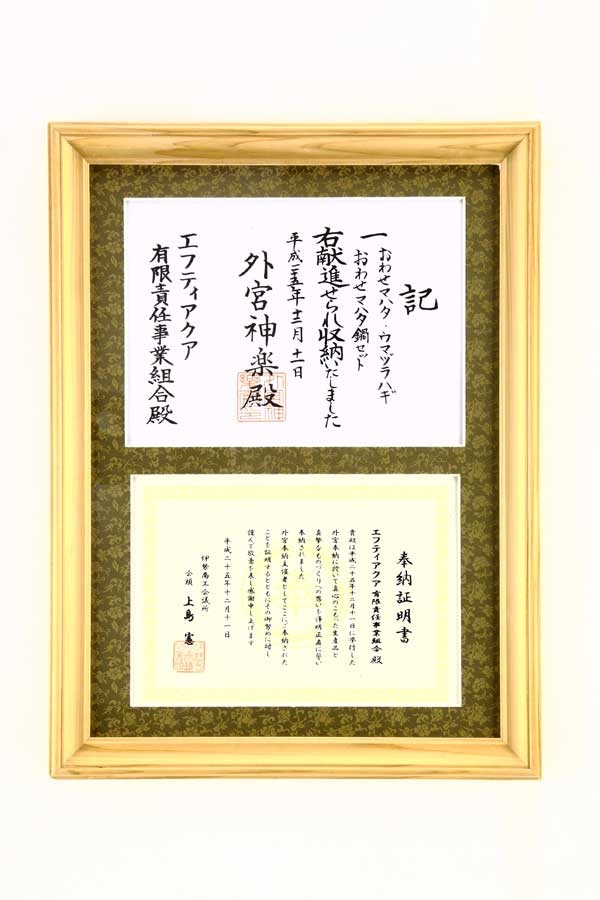 記
一 おわせマハタ・ウマヅラハギ
おわせマハタ鍋セット
右献進せられ収納いたしました
平成二五年十二月十一日
外宮神楽殿
エフティアクア
有限責任事業組合殿
奉納証明書
エフティアクア有限責任事業組合殿
貴殿は平成二十五年十二月十一日に挙行した
外宮奉納に於いて真心のこもった生産品と
真摯なものづくりへの思いを清明正直に誓い
奉納されました
外宮奉納主催者としてここにご奉納された
ことを証明するとともにその御努めに対し
謹んで敬意を表し感謝申し上げます
平成二十五年十二月十一日
伊勢商工会議所
会頭 上島 憲